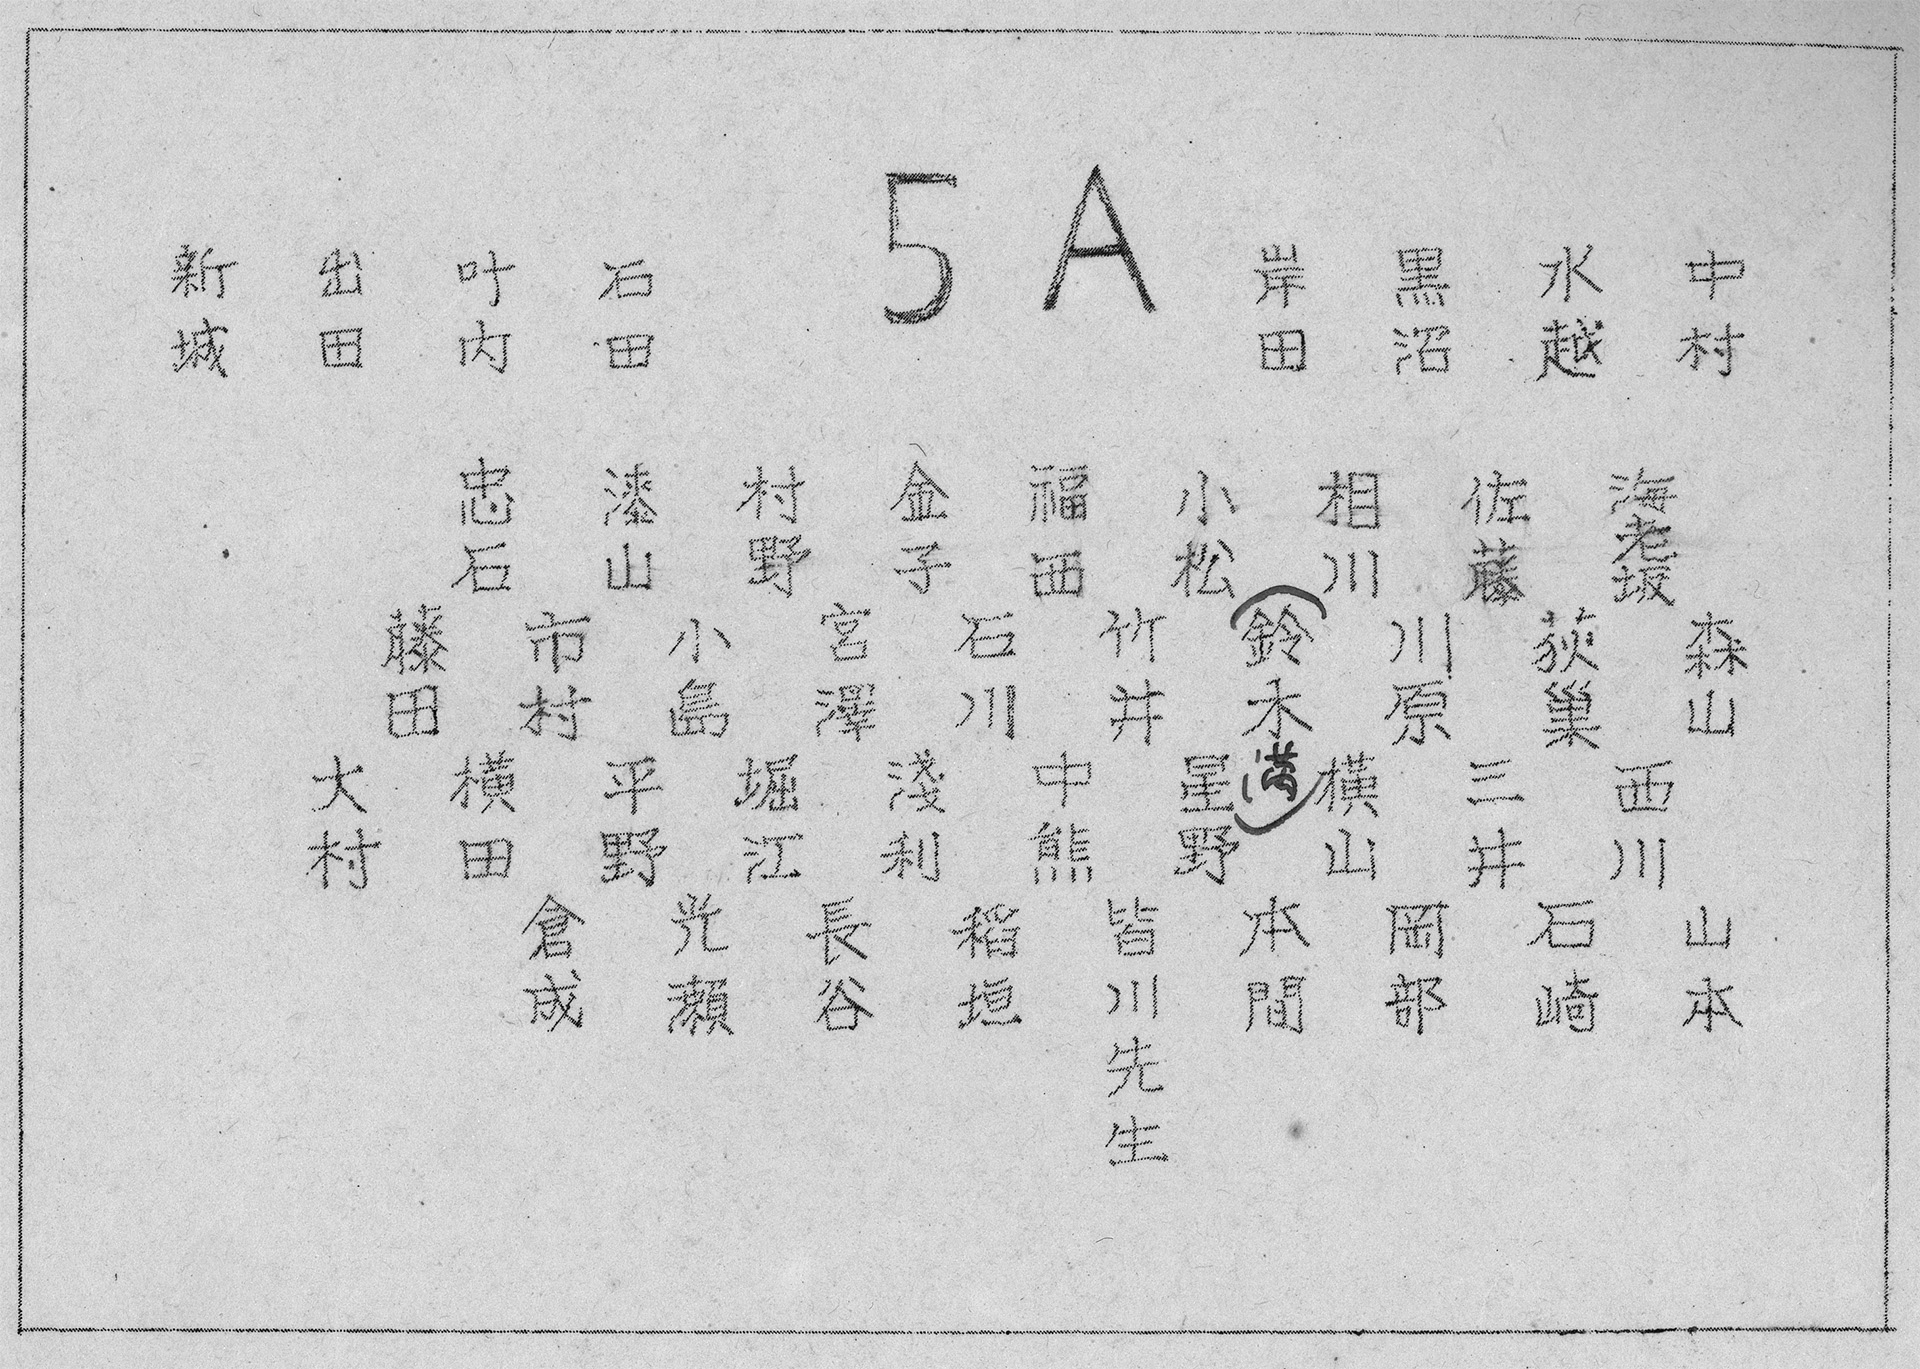 5A
中村
水越
黒沼
岸田
石田
叶内
出田
新城
海老坂
佐藤
相川
小松
福西
金子
村野
漆山
忠石
森山
荻巣
川原
(鈴木満)
竹井
石川
宮澤
小島
市村
藤田
西川
三井
横山
星野
中熊
淺利
堀江
平野
横田
大村
山本
石崎
岡部
本間
皆川先生
稻垣
長谷
光瀬
倉成